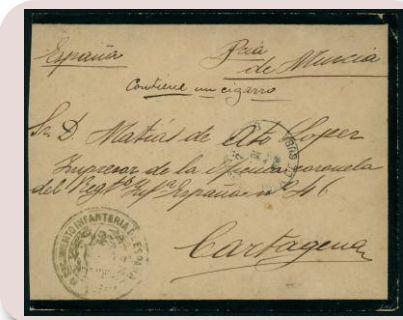 España Pcia
de Murcia
Contiene un cigarro
Sr. D. Matías de Ato Lopez
Impresor de la oficina coronela
del Regto Infa España n 46
Cartagena
REGIMIENTO INFANTERIA ESPAÑA